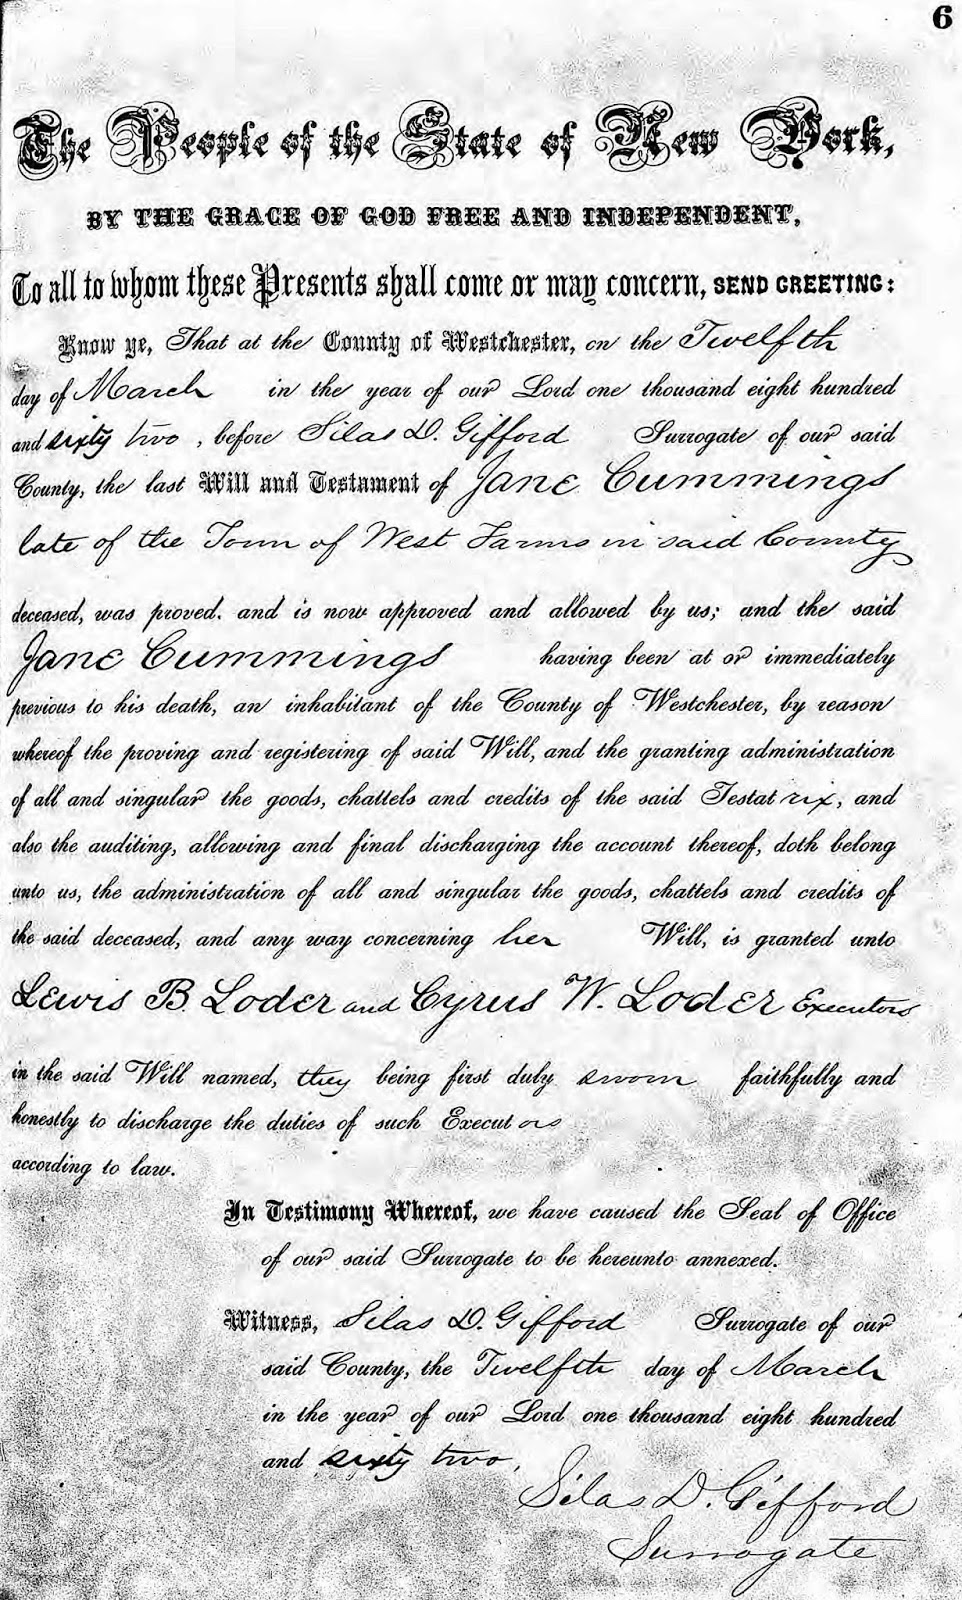 6
The People of the State of New York,
BY THE GRACE OF GOD FREE AND INDEPENDENT,
To all to whom these Presents shall come or may concern, SEND GREETING:
Know ye, That at the County of Westchester, on the Twelfth
day of March in the year of our Lord one thousand eight hundred
and sixty two, before Silas D. Gifford Surrogate of our said
County, the last Will and Testament of Jane Cummings
late of the Town of West Farms in said County
deceased, was proved. and is now approved and allowed by us; and the said
Jane Cummings having been at or immediately
previous to his death, an inhabitant of the County of Westchester, by reason
whereof the proving and registering of said Will, and the granting administration
of all and singular the goods, chattels and credits of the said Testatrix, and
also the auditing, allowing and final discharging the account thereof, doth belong
unto us, the administration of all and singular the goods, chattels and credits of
the said deceased, and any way concerning her Will, is granted unto
Lewis B. Loder and Cyrus W. Loder Executors
in the said Will named, they being first duly sworn faithfully and
honestly to discharge the duties of such Executors
according to law.
In Testimony Whereof, we have caused the Seal of Office
of our said Surrogate to be hereunto annexed.
Witness, Silas D. Gifford Surrogate of our
said County, the Twelfth day of March
in the year of our Lord one thousand eight hundred
and sixty two,
Silas D. Gifford
Surrogate